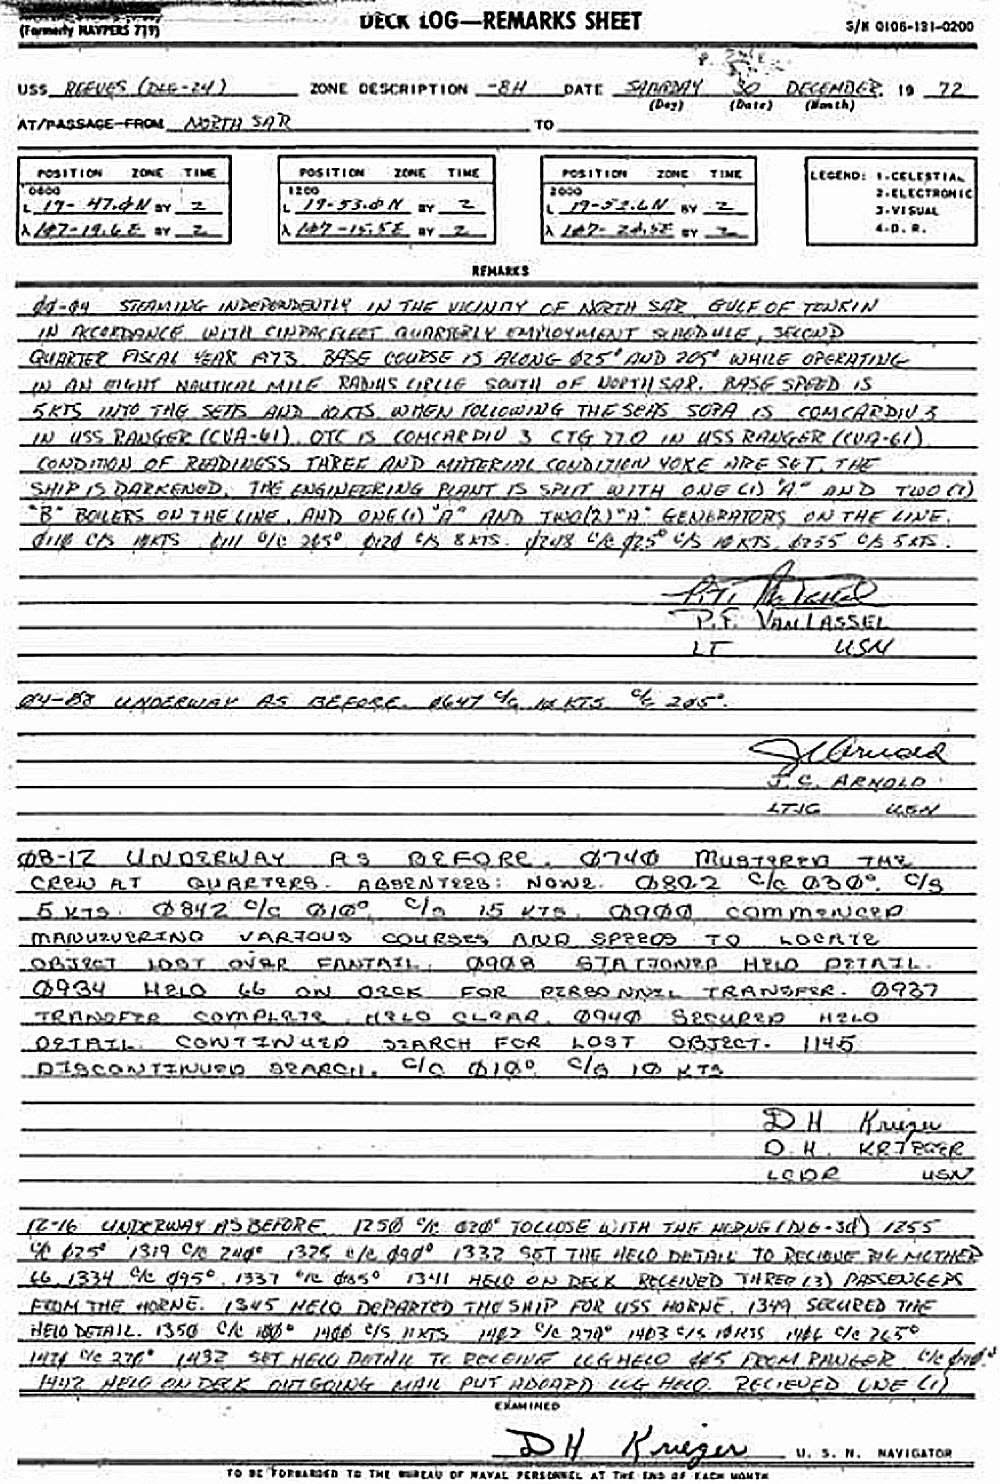 (Formerly NAVPERS 719)
DECK LOG—REMARKS SHEET
S/N 0106-131-0200
USS REEVES (DLG-24) ZONE DESCRIPTION -8H DATE SATURDAY 30 DECEMBER 19 72
(Day) (Date) (Month)
AT/PASSAGE FROM NORTH SAR TO
POSITION ZONE TIME
0800
L 19-47.0N BY 2
λ 107-19.6E BY 2
POSITION ZONE TIME
1200
L 19-53.0N BY 2
λ 107-15.5E BY 2
POSITION ZONE TIME
2000
L 19-52.6N BY 2
λ 107-20.5E BY 2
LEGEND: 1-CELESTIAL
2-ELECTRONIC
3-VISUAL
4-D. R.
REMARKS
00-04 STEAMING INDEPENDENTLY IN THE VICINITY OF NORTH SAR GULF OF TONKIN
IN ACCORDANCE WITH CINPACFLEET QUARTERLY EMPLOYMENT SCHEDULE, SECOND
QUARTER FISCAL YEAR 1973 BASE COURSE IS ALONG 025° AND 205° WHILE OPERATING
IN AN EIGHT NAUTICAL MILE RADIUS CIRCLE SOUTH OF NORTH SAR. BASE SPEED IS
5KTS INTO THE SEAS AND 10KTS WHEN FOLLOWING THE SEAS SOPA IS COMCARDIV 3
IN USS RANGER (CVA-61). OTC IS COMCARDIV 3 CTG 77.0 IN USS RANGER (CVA-61)
CONDITION OF READINESS THREE AND MATERIAL CONDITION YOKE ARE SET. THE
SHIP IS DARKENED. THE ENGINEERING PLANT IS SPLIT WITH ONE (1) "A" AND TWO (2)
"B" BOILERS ON THE LINE, AND ONE (1) "A" AND TWO (2) "A" GENERATORS ON THE LINE.
0110 C/S 10KTS 0111 C/C 205° 0120 C/S 8KTS. 0248 C/C 025° C/S 10KTS. 0255 C/S 5KTS.
P.F. VANLASSEL
LT USN
04-08 UNDERWAY AS BEFORE. 0647 C/S 10 KTS. C/C 205°.
J C Arnold
J. C. ARNOLD
LTJG USN
08-12 UNDERWAY AS BEFORE. 0740 MUSTERED THE
CREW AT QUARTERS. ABSENTEES: NONE. 0802 C/C 030°. C/S
5 KTS. 0842 C/C 010° C/S 15 KTS. 0900 COMMENCED
MANUEVERING VARIOUS COURSES AND SPEEDS TO LOCATE
OBJECT LOST OVER FANTAIL. 0908 STATIONED HELO DETAIL.
0934 HELO 66 ON DECK FOR PERSONNEL TRANSFER. 0937
TRANSFER COMPLETE. HELO CLEAR. 0940 SECURED HELO
DETAIL. CONTINUED SEARCH FOR LOST OBJECT. 1145
DISCONTINUED SEARCH. C/C 010° C/S 10 KTS
D H Krieger
D. H. KRIEGER
LCDR USN
12-16 UNDERWAY AS BEFORE. 1250 C/C 020° TO CLOSE WITH THE HORNE (DLG-30) 1255
C/C 025° 1319 C/C 240° 1325 C/C 090° 1332 SET THE HELO DETAIL TO RECIEVE BIG MOTHER
66 1334 C/C 095°. 1337 C/C 085° 1341 HELO ON DECK RECEIVED THREE (3) PASSENGERS
FROM THE HORNE. 1345 HELO DEPARTED THE SHIP FOR USS HORNE. 1349 SECURED THE
HELO DETAIL. 1350 C/C 100° 1400 C/S 11KTS 1402 C/C 270° 1403 C/S 10KTS 1406 C/C 265°
C/C 270° 1432 SET HELO DETAIL TO RECEIVE LOG HELO 005 FROM RANGER C/C
1442 HELO ON DECK OUTGOING MAIL PUT ABOARD LOG HELO. RECIEVED ONE (1)
EXAMINED
D H Krieger U. S. N. NAVIGATOR
TO BE FORWARDED TO THE BUREAU OF NAVAL PERSONNEL AT THE END OF EACH MONTH